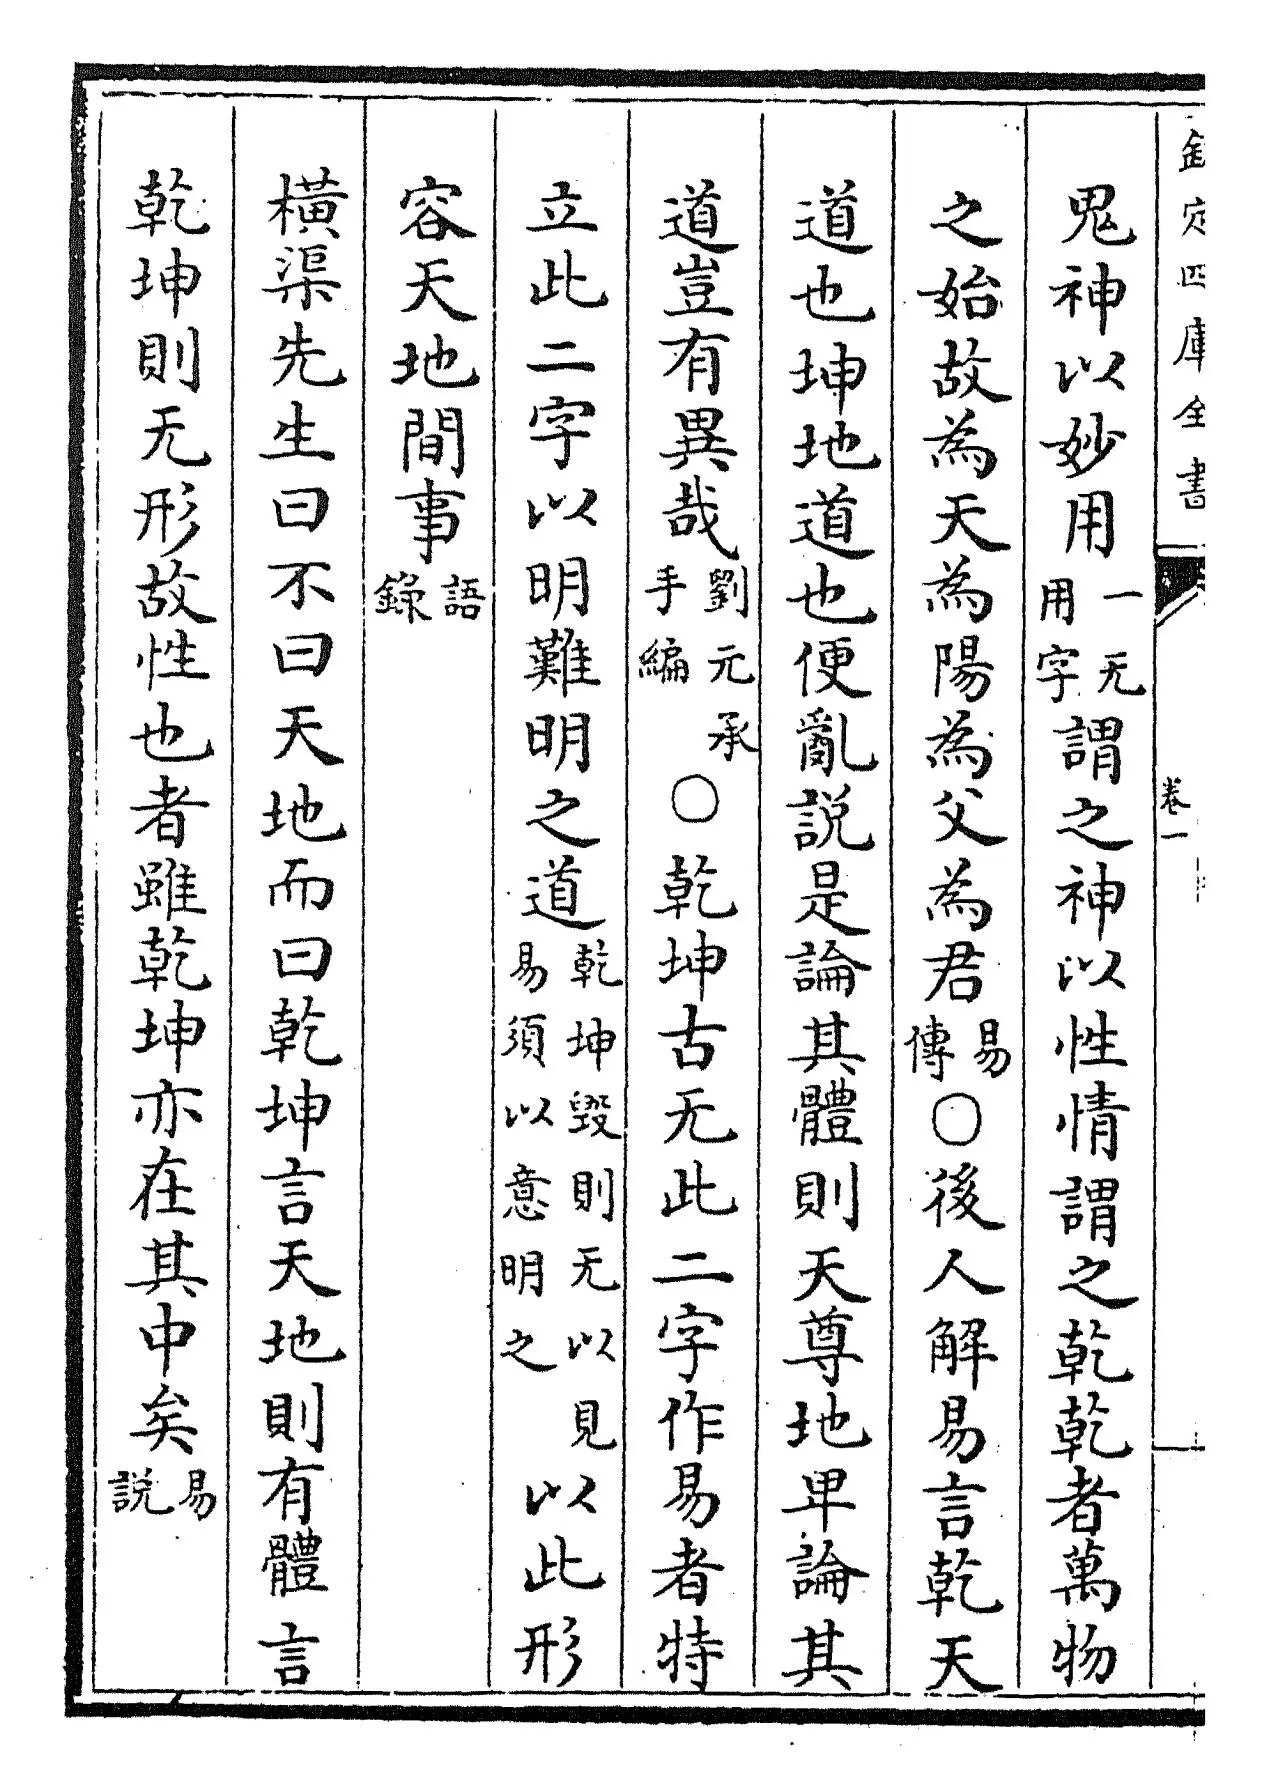 欽定四庫全書
卷一
鬼神以妙用一无用字謂之神以性情謂之乾乾者萬物
之始故為天為陽為父為君易傳○後人解易言乾天
道也坤地道也便亂說是論其體則天尊地卑論其
道豈有異哉劉元承手編○乾坤古无此二字作易者特
立此二字以明難明之道乾坤毀則无以見易須以意明之以此形
容天地間事語錄
橫渠先生曰不曰天地而曰乾坤言天地則有體言
乾坤則无形故性也者雖乾坤亦在其中矣易說